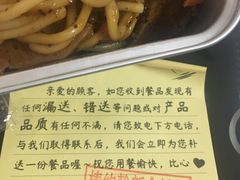 亲爱的顾客，如您收到餐品发现有
任何漏送、错送等问题或对产品
品质有任何不满，请您致电下方电话，
与我们取得联系后，我们会立即为您补
送一份餐品喔~祝您用餐愉快，比心♥